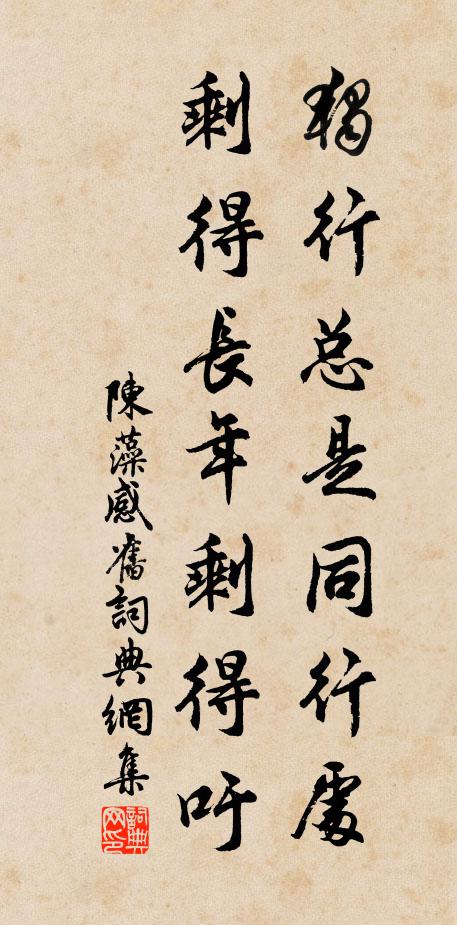 獨行总是同行處
剩得長年剩得吁
陳藻感舊詞典網集
詞典网印